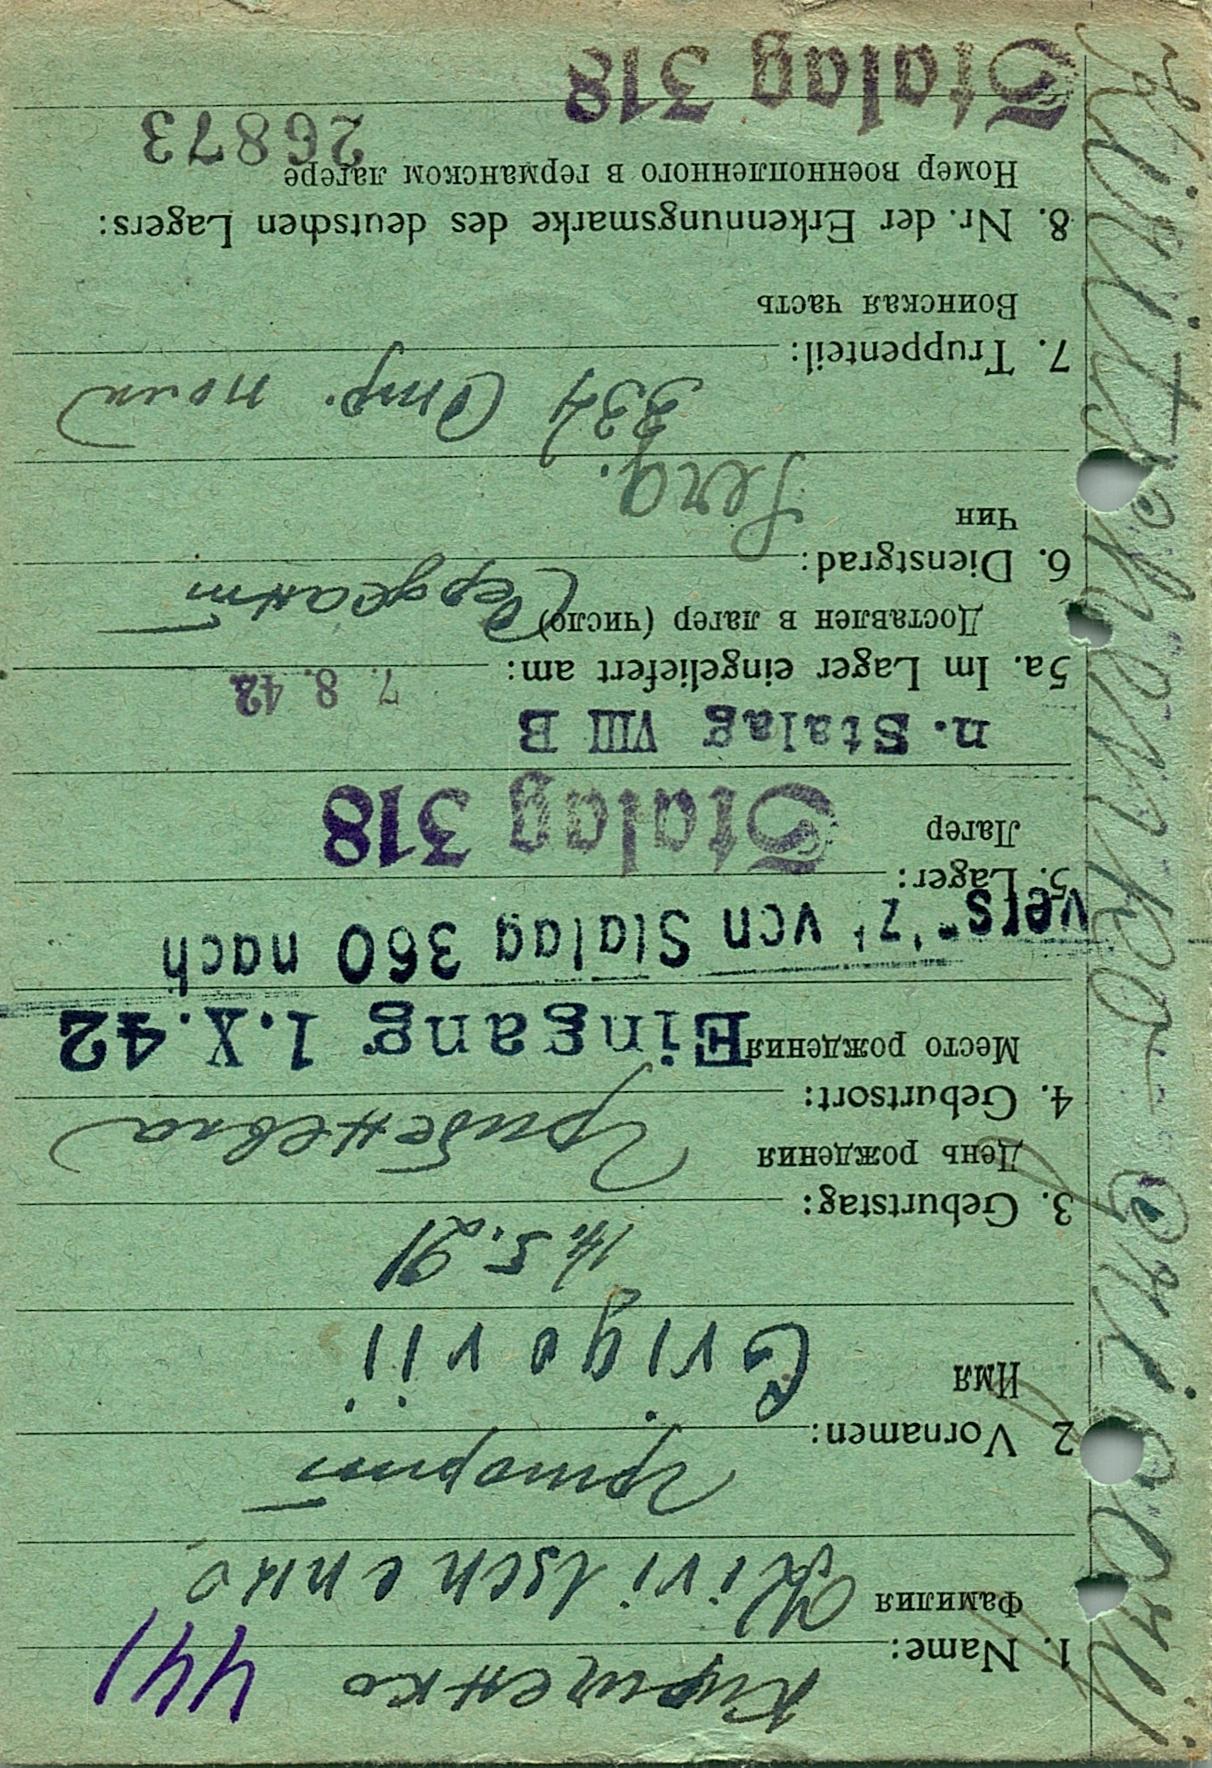 Кириченко
441
1. Name:
Фамилия
Kiritschenko
Григорий
2 Vornamen:
Имя
Grigorii
14.5.21
3. Geburtstag:
День рождения
4. Geburtsort:
Место рождения
Eingang 1.X.42
vers. "z" von Stalag 360 nach
5. Lager:
Лагер
Stalag 318
n. Stalag VIII B
7. 8. 42
5a. Im Lager eingeliefert am:
Доставлен в лагер (число)
Сержант
6. Dienstgrad:
Чин
Serg.
Стр. полк
7. Truppenteil:
Воинская часть
8. Nr. der Erkennungsmarke des deutschen Lagers:
Номер военнопленного в германском лагере
26873
Stalag 318